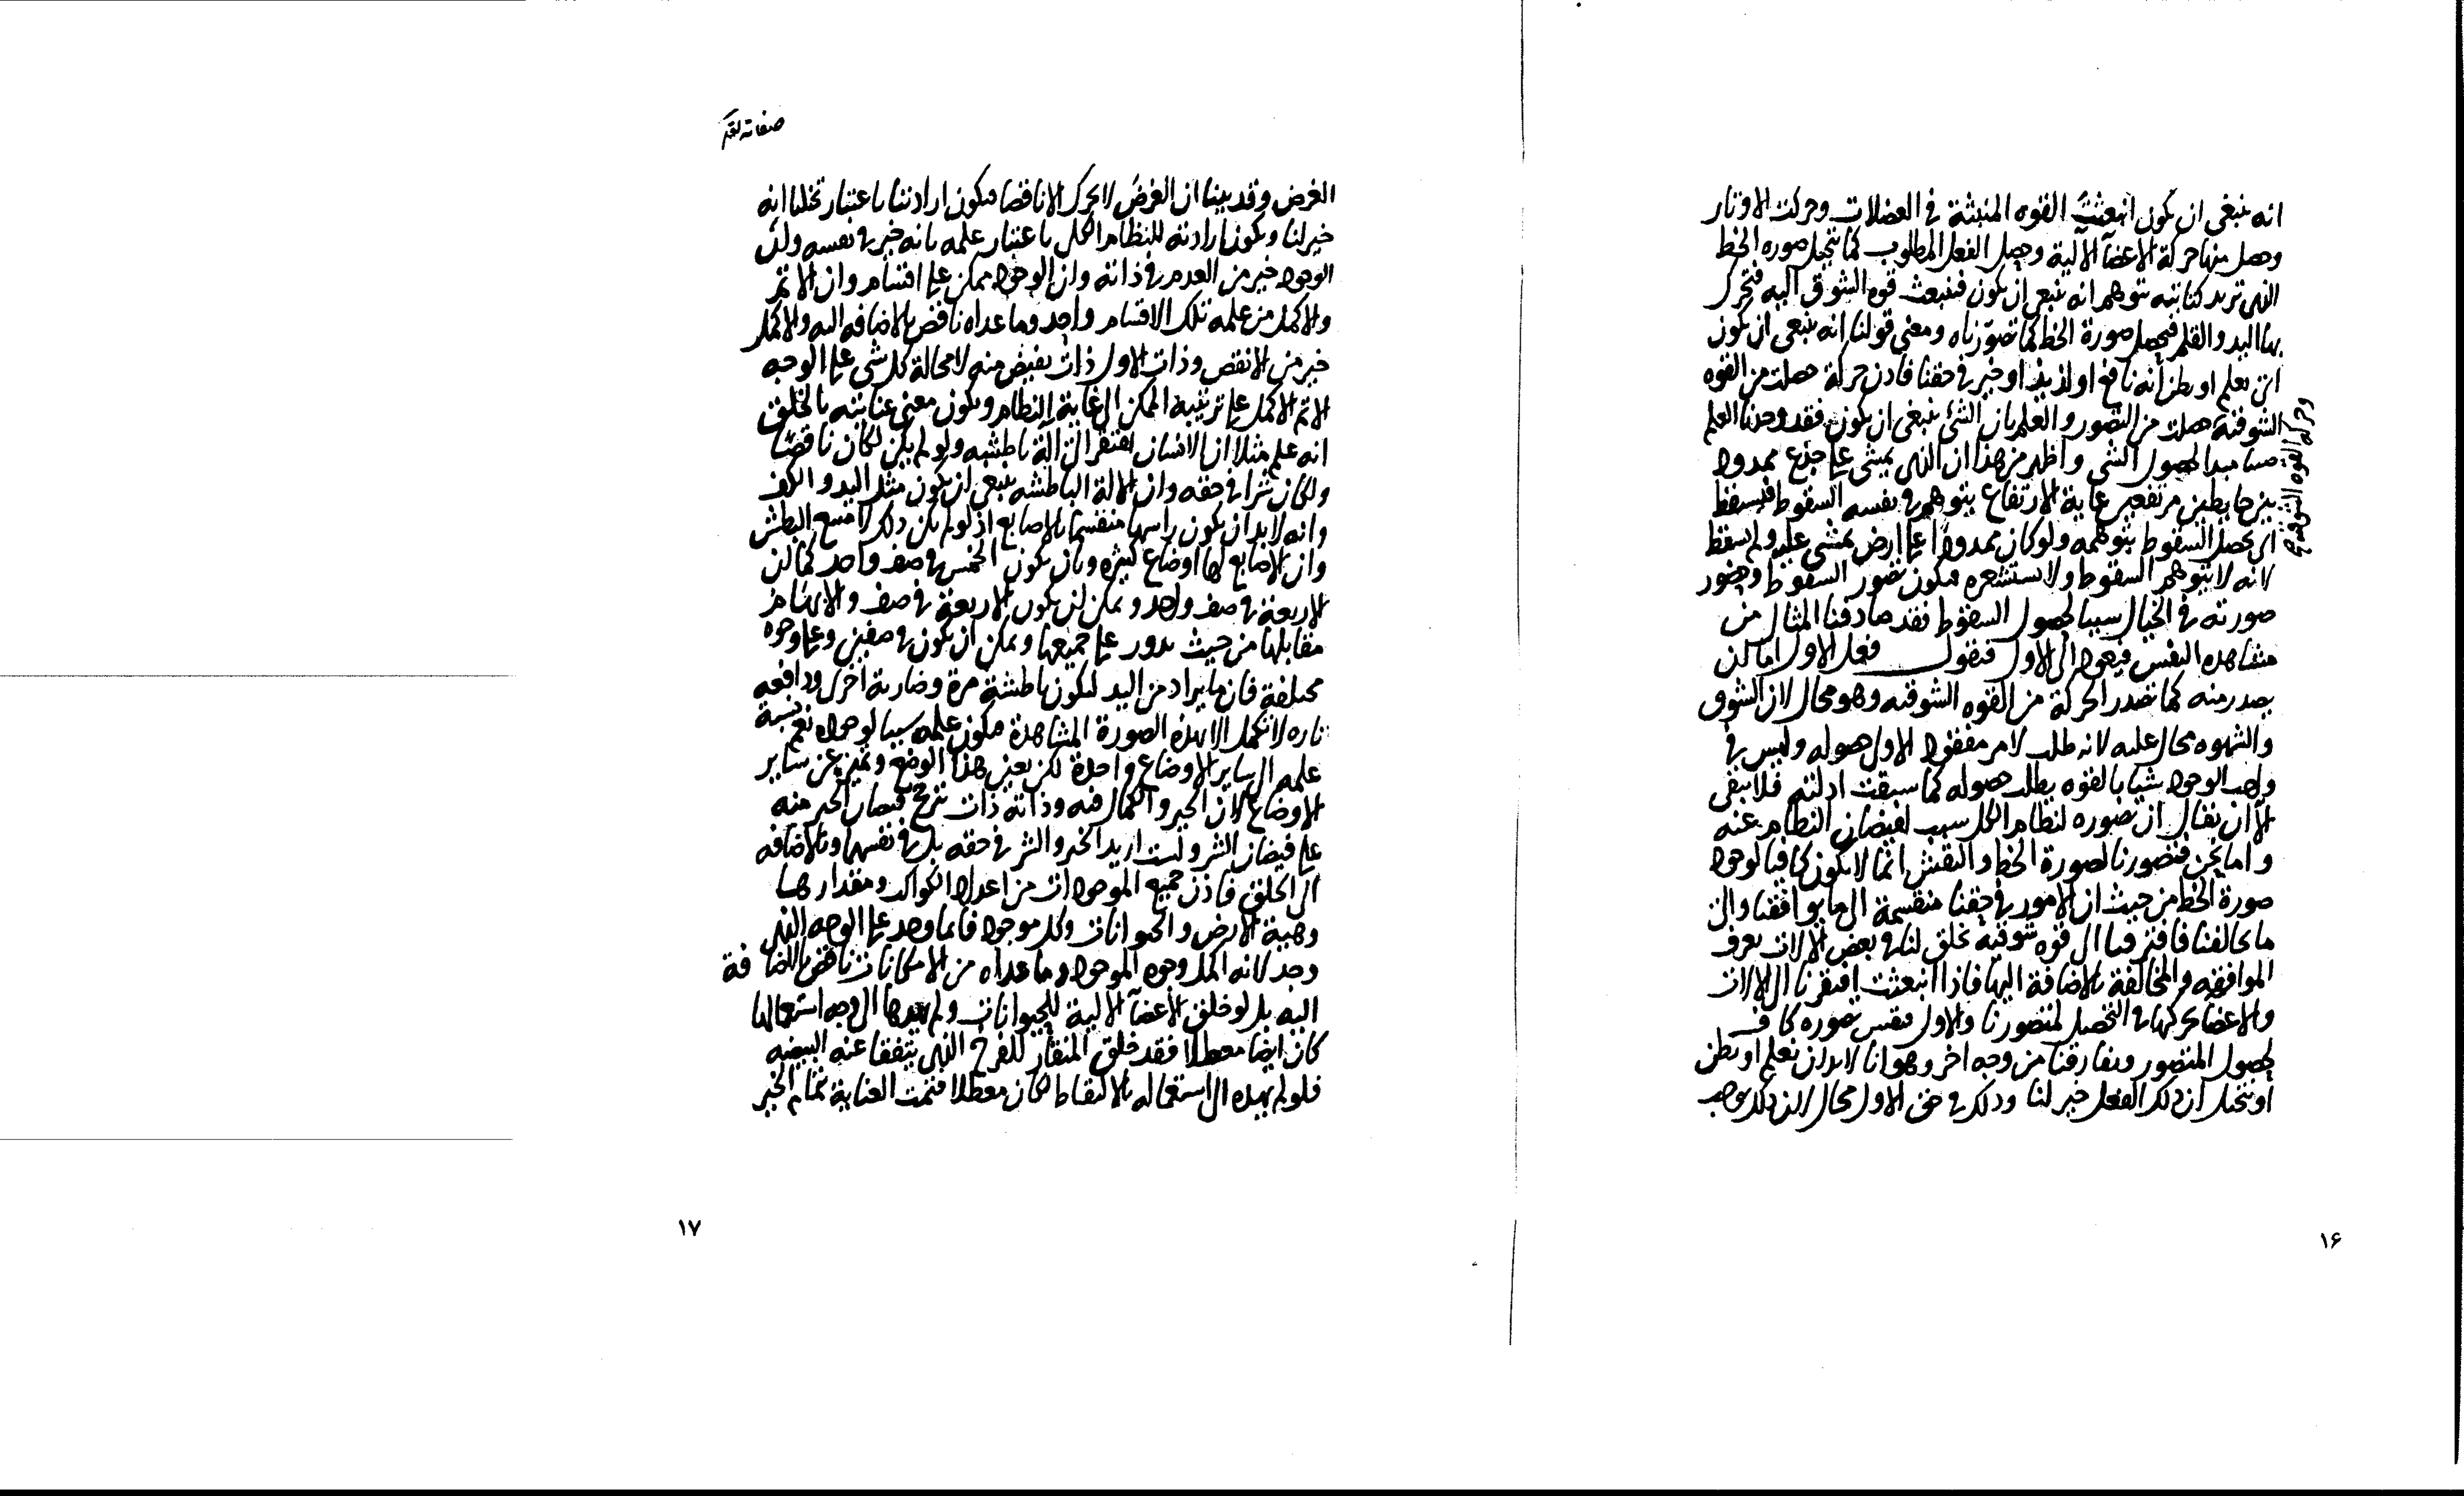 انه ينبغى ان يكون انبعثت القوه المنبثة فى العضلات وحركت الاوتار
وحصل منها حركة الاعضآ الآلية وحصل الفعل المطلوب كما نتخيل صوره الخط
الذى نريد كتابته نتوهم انه ينبغى ان يكون فتنبعث قوه الشوق اليه فتحرك
بها اليد والقلم فيحصل صورة الخط كما تصوّرناه ومعنى قولنا انه ينبغى ان يكون
اى نعلم او نظن انه نافع او لذيذ او خير فى حقنا فاذن حركة حصلت من القوه
وحركة القوه الشوقية
الشوقية حصلت من التصور والعلم بان الشئ ينبغى ان يكون فقد وجدنا العلم
مبدا لحصول الشى واظهر من هذا ان الذى يمشى على جذع ممدود
بين حايطين مرتفعين غاية الارتفاع يتوهم فى نفسه السقوط فيسقط
اى يحصل السقوط بتوهمه ولو كان ممدودا على ارض يمشى عليه ولم يسقط
لانه لا يتوهم السقوط ولا يستشعره فيكون تصور السقوط وحضور
صورته فى الخيال سببا لحصول السقوط فقد صادفنا المثال من
مشاهده النفس فيعود الى الاول فنقول فعل الاول اما ان
يصدر منه كما تصدر الحركة من القوه الشوقيه وهو محال لان الشوق
والشهوه محال عليه لانه طلب لامر مفقود الاولى حصوله وليس فى
واجب الوجود شيا بالقوه يطلب حصوله كما سبقت ادلته فلا يبقى
الا ان يقال ان تصوره لنظام الكل سبب لفيضان النظام عنه
واما نحن فتصورنا لصورة الخط والنقش انما لا يكون كافيا لوجود
صورة الخط من حيث ان الامور فى حقنا منقسمة الى ما يوافقنا والى
ما يخالفنا فافترقنا الى قوه شوقيه تخلق لنا فى بعض الالات يعرف
الموافقه والمخالفة بالاضافة اليها فاذا انبعثت افتقرنا الى الالات
والاعضا نحركها فى التحصيل لمتصورنا والاول فنفس تصوره كاف
لحصول المتصور ويفارقنا من وجه اخر وهو انا لا بد ان نعلم او نظن
او نتخيل ان ذلك الفعل خير لنا وذلك فى حق الاول محال لان ذلك يوجب
۱۶
صفاته لقم
الغرض وقد بينا ان الغرض لا يحرك الا ناقصا فيكون ارادتنا باعتبار تخيلنا انه
خير لنا ويكون ارادته للنظام الكلى باعتبار علمه بانه خير فى نفسه وان
الوجود خير من العدم فى ذاته وان الوجود ممكن على اقسام وان الاتم
والاكمل من علمه تلك الاقسام واحد وما عداه ناقص بالاضافه اليه والاكمل
خير من الانقص وذات الاول ذات يفيض منه لا محالة كل شى على الوجه
الاتم الاكمل على ترتيبه الممكن الى غاية النظام ويكون معنى عنايته بالخلق
انه علم مثلا ان الانسان يفتقر الى آلة باطشه ولو لم يكن لكان ناقصا
ولكان شرا فى حقه وان الالة الباطشه ينبغى ان يكون مثل اليد والكف
وانه لا بد ان يكون راسها منقسما بالاصابع اذ لو لم يكن ذلك لامتنع البطش
وان الاصابع لها اوضاع كثيره وبان يكون الخمس فى صف واحد كما ان
الاربعة فى صف واحد ويمكن ان يكون الاربعة فى صف والابهام من
مقابلها من حيث يدور على جميعها ويمكن ان يكون فى صفين وعلى وجوه
مختلفة فان ما يراد من اليد ليكون باطشة مرة وضاربة اخرى ودافعه
تاره لا تكمل الا بهذه الصورة المشاهدة فيكون علمه سببا لوجوده نعم نسبة
علمه الى ساير الاوضاع واحدة لكن تعين هذا الوضع وتميز عن ساير
الاوضاع لان الخير والكمال فيه وذاته ذات ترجح فيضان الخير منه
على فيضان الشر ولست اريد الخير والشر فى حقه بل فى نفسها وبالاضافه
الى الخلق فاذن جميع الموجودات من اعداد الكواكب ومقدارها
وهيئة الارض والحيوانات وكل موجود فانما وجد على الوجه الذى
وجد لانه اكمل وجوه الموجود وما عداه من الامكانات ناقص بالاضافة
اليه بل لو خلق الاعضآ الالية للحيوانات ولم يهدها الى وجه استعمالها
كان ايضا معطلا فقد خلق المنقار للفرخ الذى يتفقا عنه البيضه
فلو لم يهده الى استعماله بالالتقاط لكان معطلا فتمت العناية بتمام الخير
۱۷